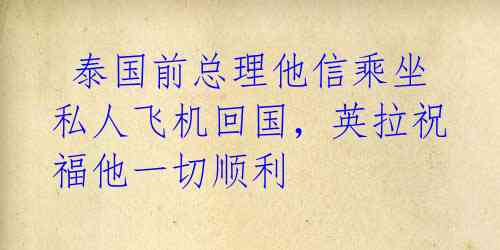 泰国前总理他信乘坐
私人飞机回国，英拉祝
福他一切顺利